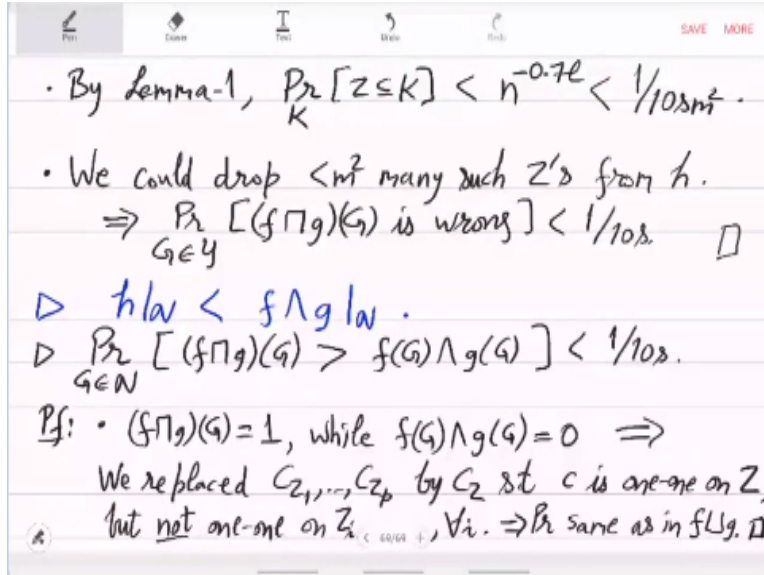 Pen Eraser Text Undo Redo SAVE MORE
· By Lemma-1, Pr_K [Z ⊆ K] < n^{-0.7ℓ} < 1/10sm².
· We could drop <m² many such Z's from h.
⇒ Pr_{G∈Y} [(f⊓g)(G) is wrong] < 1/10s. □
▷ h|_N < f∧g|_N.
▷ Pr_{G∈N} [(f⊓g)(G) > f(G)∧g(G)] < 1/10s.
Pf: · (f⊓g)(G)=1, while f(G)∧g(G)=0 ⇒
We replaced C_{Z_1},..,C_{Z_p} by C_Z st c is one-one on Z,
but not one-one on Z_i, ∀i. ⇒ Pr same as in f⊔g. □
< 60/60 +